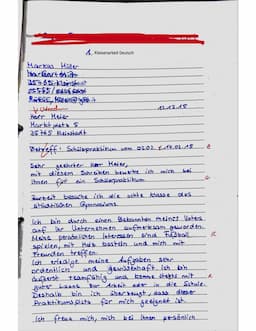 1. Klassenarbeit Deutsch
Markus Müller
12.12.15
Herr Meier
Marktplatz 5
25765 Kleinstadt
Betreff: Schülerpraktikum vom 02.02. - 17.02.15
Sehr geehrter Herr Meier,
mit diesem Schreiben bewerbe ich mich bei
Ihnen für ein Schülerpraktikum.
Zurzeit besuche ich die achte Klasse des
städtischen Gymnasiums.
Ich bin durch einen Bekannten meines Vaters
auf Ihr Unternehmen aufmerksam geworden.
Meine persönlichen Interessen sind Fußball
spielen, mit Holz basteln und mich mit
Freunden treffen.
Ich erledige meine Aufgaben sehr
ordentlich und gewissenhaft. Ich bin
äußerst teamfähig und komme stets mit
guter Laune zur Arbeit oder in die Schule.
Deshalb bin ich überzeugt, dass dieser
Praktikumsplatz für mich geeignet ist.
Ich freue mich, mich bei Ihnen persönlich